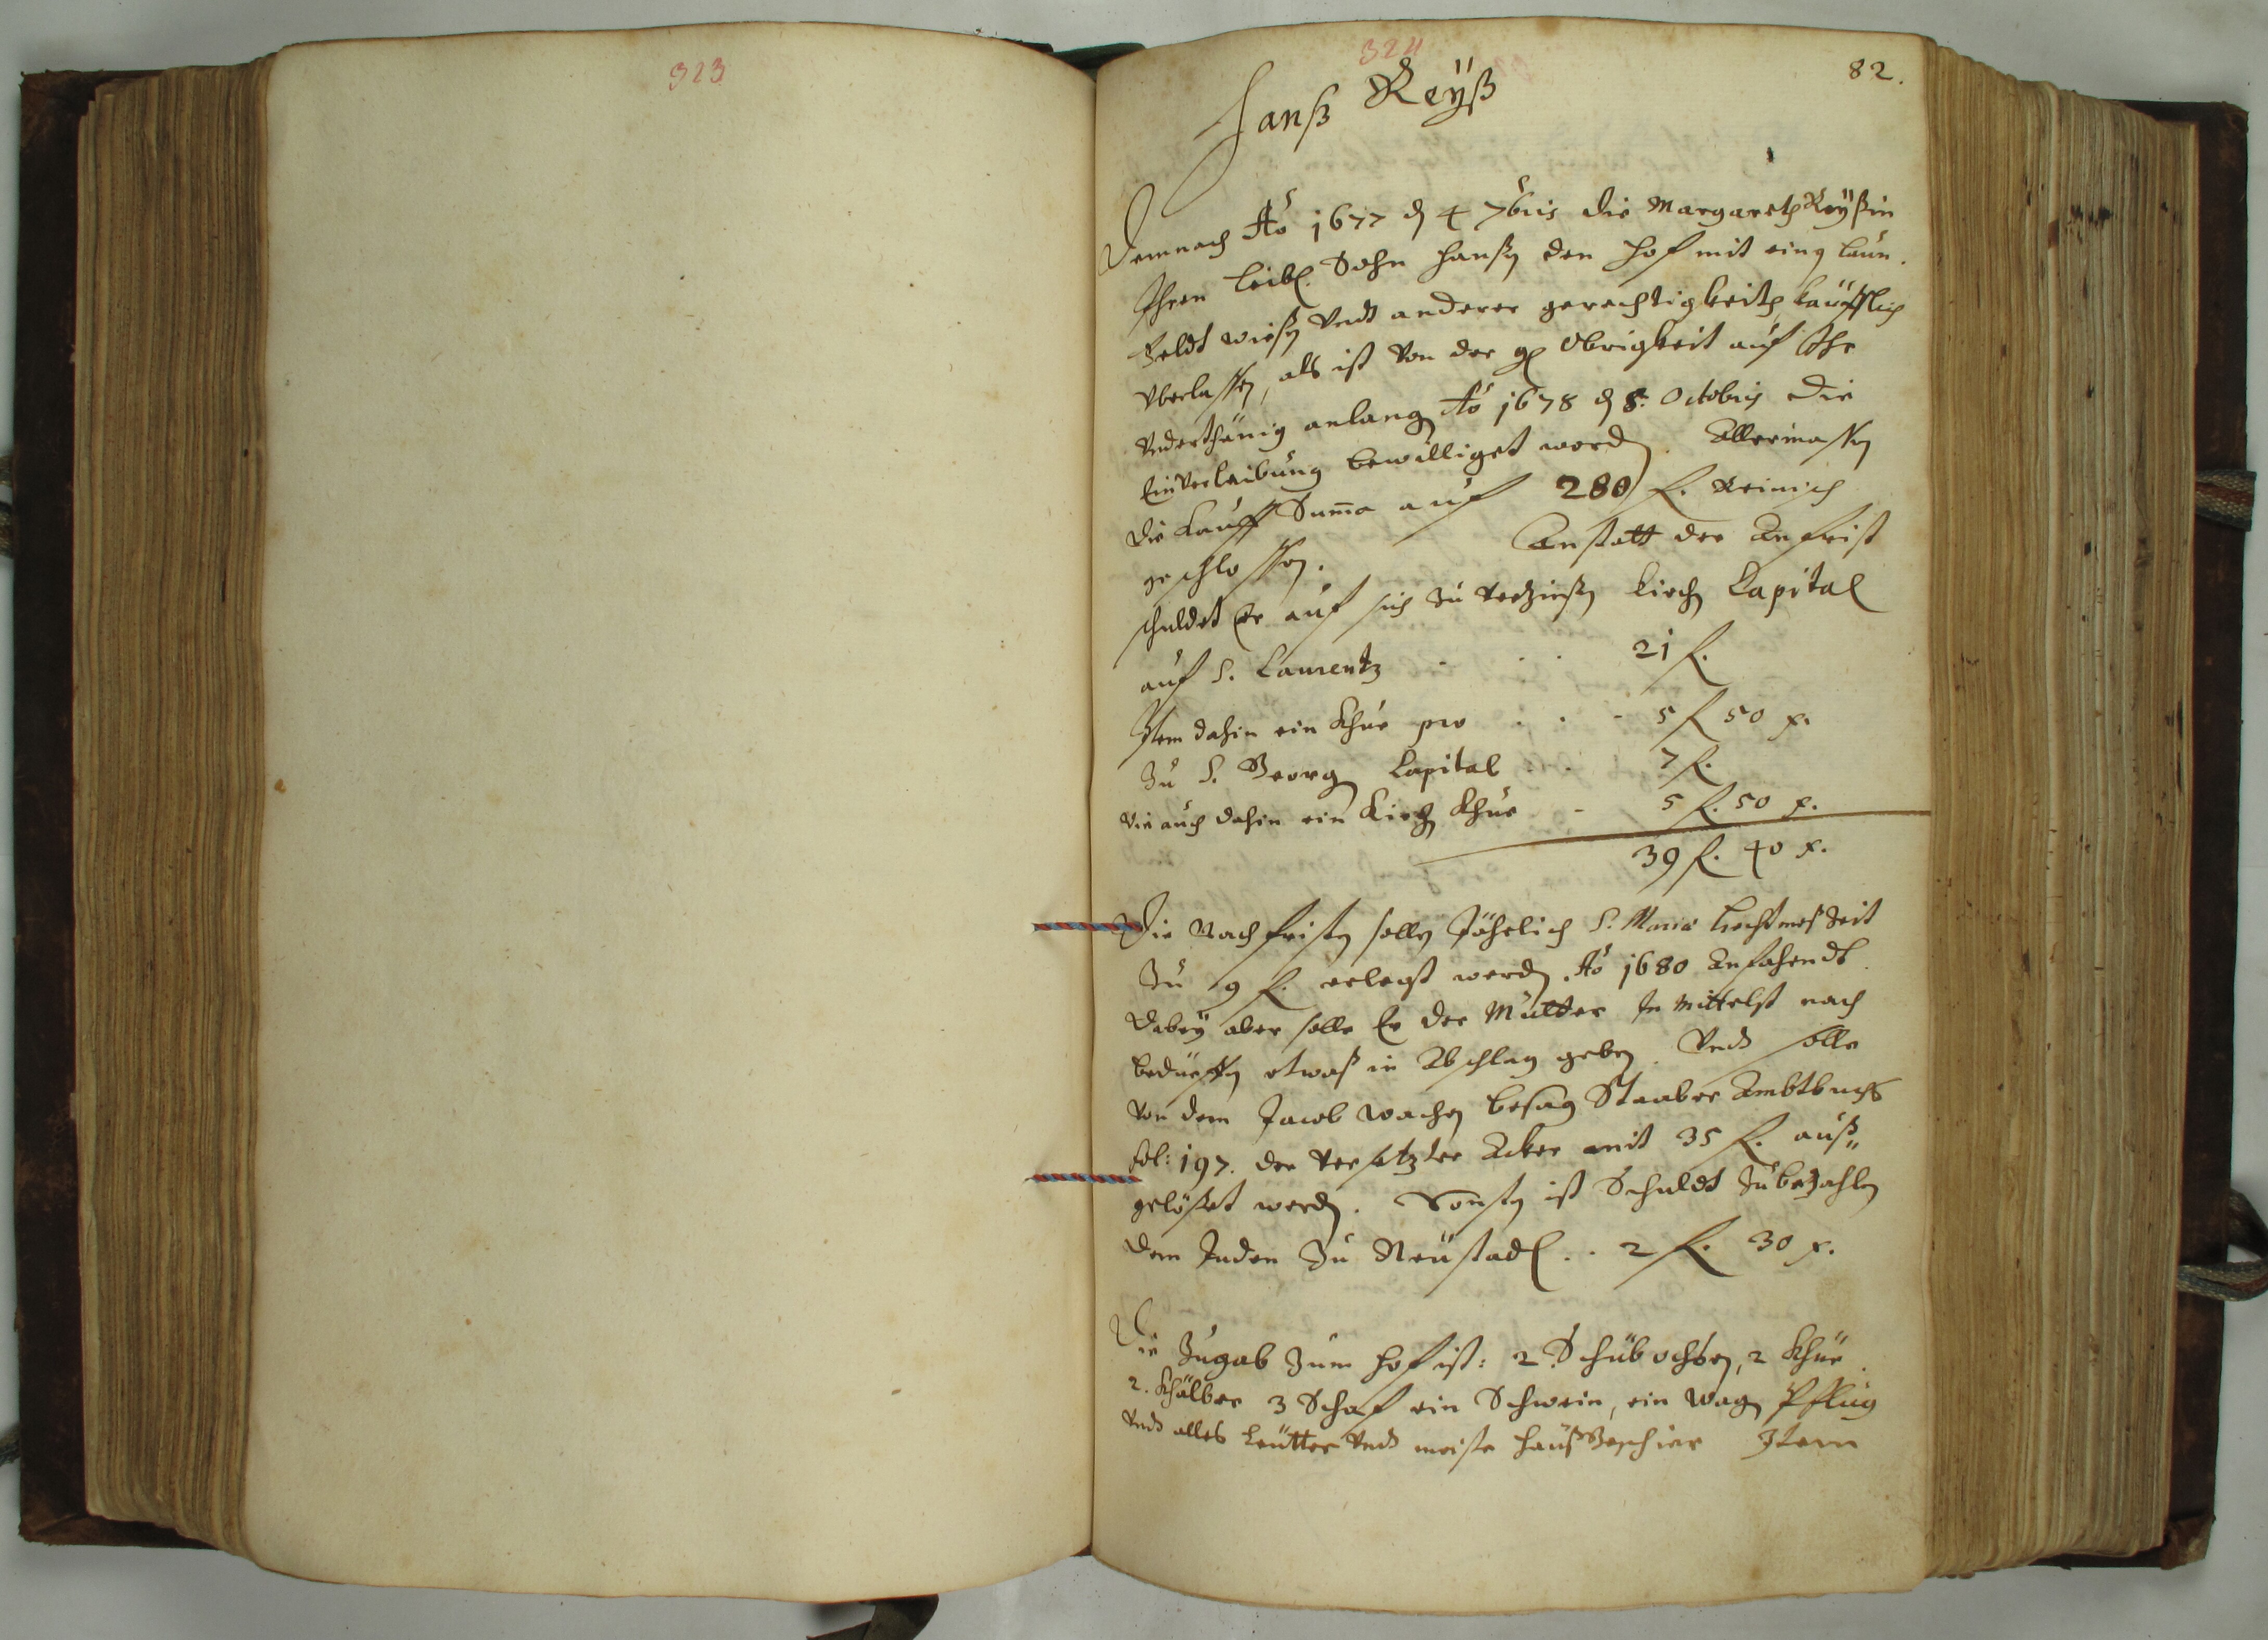 323
324
82.
Hanß Reÿß
Demnach Aõ 1677 d 4 7bris die Margareth Reÿßin
Ihren leibl. Sohn Hanßen den Hof mit eing
Feldt wießen vndt anderer gerechtigkeiten käufflich
vberlassen, als ist von der gn Obrigkeit auf Ihr
vnderthänig anlangen Aõ 1678 d 8. Octobris die
Einverleibung bewilliget worden. Allermassen
die Kauff Suma auf 280 f. Reinisch
geschlossen. Anstatt der Anfrist
schuldet Er auf sich zu verzinßen Kirchen Capital
auf S. Laurentz . . . 21 f.
Item dahin ein Khue pro . . - 5 f 50 x.
Zu S. Georgen Capital . . 7 f.
wie auch dahin ein Kirchen Khue - 5 f. 50 x.
39 f. 40 x.
Die Nachfristen sollen Jährlich S. Maria Liechtmeß Zeit
Zu 9 f. erlegt werden Aõ 1680 Anfahendt
dabeÿ aber solle Er der Mutter In mittelst nach
bedürffen etwaß in Abschlag geben. Vndt solle
von dem Jacob Wachen besag Staaber Ambtbuchs
fol: 197. der versetzter Acker mit 35 f. auß„
gelößet werden. Sonsten ist Schuldt zubezahlen
dem Juden Zu Neüstadl . . 2 f. 30 x.
Die Zugab Zum Hof ist: 2 Schubochsen, 2 Khüe
2. Khälber 3 Schaf ein Schwein, ein Wagen Pflug
vndt alles vndt meiste Hauß Geschier Item